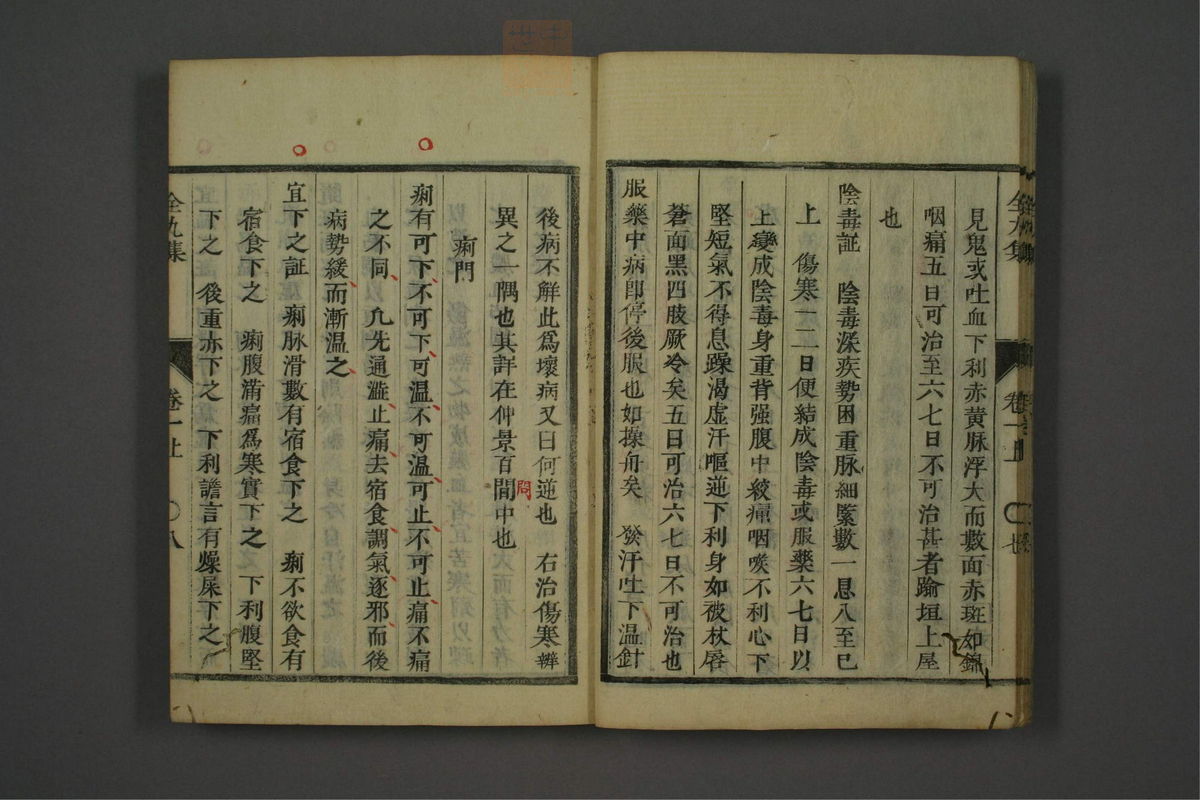 見鬼或吐血下利赤黄脉浮大而數面赤斑如錦
咽痛五日可治至六七日不可治甚者踰垣上屋
也
陰毒証 陰毒深疾勢困重脉細緊數一息八至已
上 傷寒一二日便結成陰毒或服藥六七日以
上變成陰毒身重背强腹中絞痛咽喉不利心下
堅短氣不得息躁渴虛汗嘔逆下利身如被杖唇
蒼面黑四肢厥冷矣五日可治六七日不可治也
服藥中病卽停後服也如操舟矣 發汗吐下温針
全九集 卷一上 七
後病不解此爲壞病又曰何逆也 右治傷寒辨
異之一隅也其詳在仲景百間中也
問
痢門
痢有可下不可下可温不可温可止不可止痛不痛
之不同凢先通澁止痛去宿食調氣逐邪而後
病勢緩而漸温之
宜下之証 痢脉滑數有宿食下之 痢不欲食有
宿食下之 痢腹滿痛爲寒實下之 下利腹堅
下之 後重亦下之 下利譫言有燥屎下之
全九集 卷一上 八